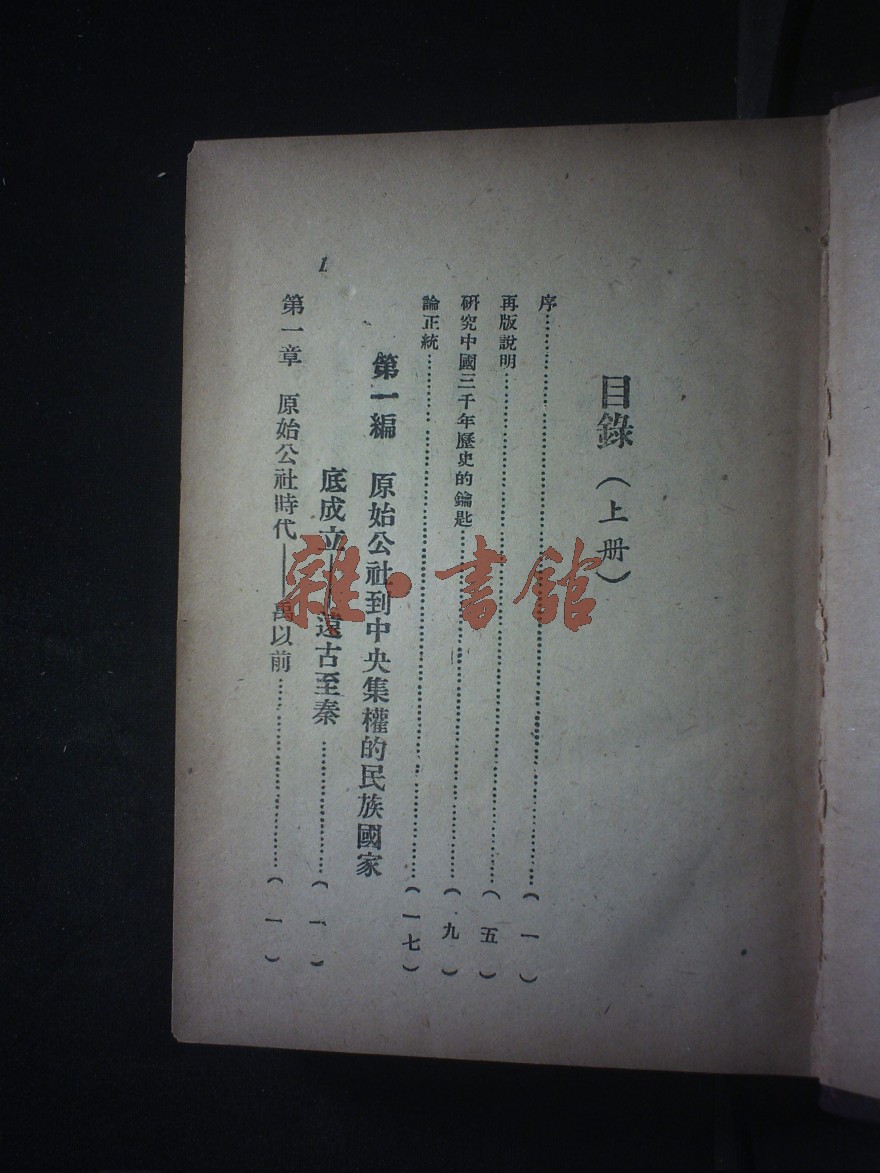 目錄(上册)
序……(一)
再版說明……(五)
研究中國三千年歷史的鑰匙……(九)
論正統……(一七)
第一編 原始公社到中央集權的民族國家
底成立——遠古至秦……(一)
第一章 原始公社時代——禹以前……(一)
1
雜·書館